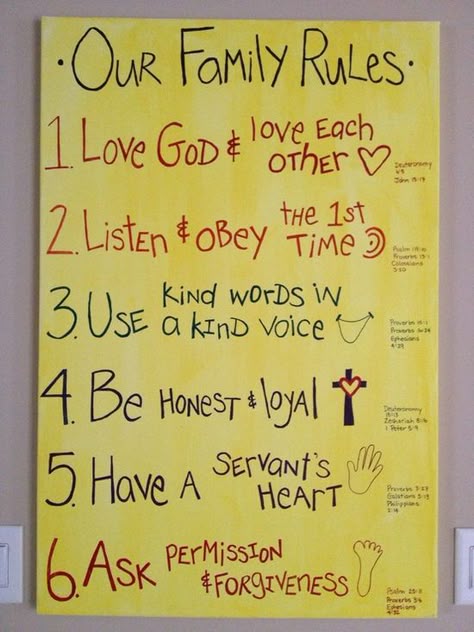 · Our Family Rules ·
1. Love God & love Each
other
Deuteronomy
John
2. Listen & obey the 1st
Time
Psalm
Proverbs 13:1
Colossians
3:20
3. Use kind words in
a kind voice
Proverbs 15:1
Proverbs 16:24
Ephesians
4:29
4. Be Honest & loyal
Deuteronomy
Zechariah 8:16
1 Peter
5. Have A Servant's
Heart
Proverbs 3:27
Galatians 5:13
Philippians
6. Ask Permission
& Forgiveness
Psalm
Proverbs 3:6
Ephesians
4:32